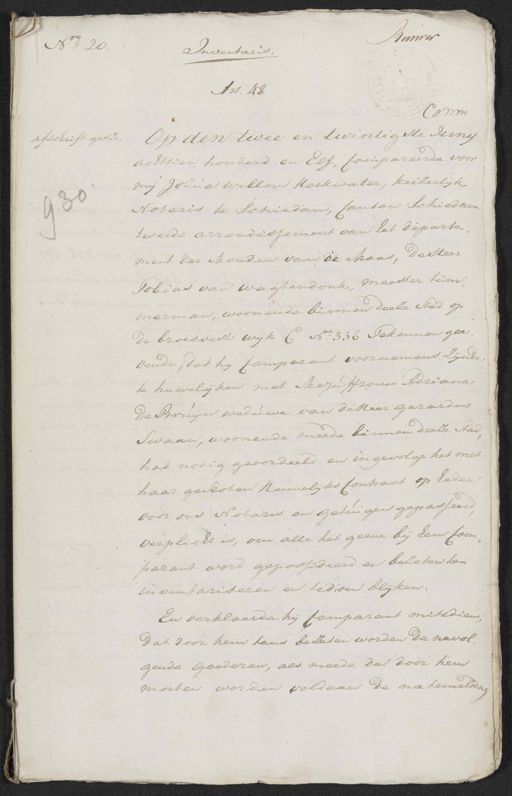 No. 20.
Inventaris.
Art. 48
afschrift ged.
930
Op den twee en twintigste Juny
achttien honderd en Elf, Compareerde voor
mij Josua Willem Hoekwater, keizerlijk
Notaris te Schiedam, Canton Schiedam
tweede arrondissement van het departe-
ment der Monden van de Maas, de Heer
Tobias van Wagtendonk, meester tim-
merman, woonende binnen deeze Stad op
de broersvest wijk C No. 336 Tekennen gee-
vende, dat hij Comparant voorneemens Zynde
te huwelijken met Mejuffrouw Adriana
De Bruijn weduwe van de Heer Gerardus
Swaan, woonende meede binnen deeze Stad,
had nodig geoordeeld en ingevolge het met
haar gesloten Huwelijks Contract op heden
voor ons Notaris en getuigen gepasseerd,
verplicht is, om alle het geene bij hem Com-
parant word gepossideerd en bezeten te
inventariseren en te doen blijken.
En verklaarde hij Comparant mitsdien,
dat door hem thans bezeten worden de navol
gende goederen, als meede dat door hem
moeten worden voldaan de natemelden